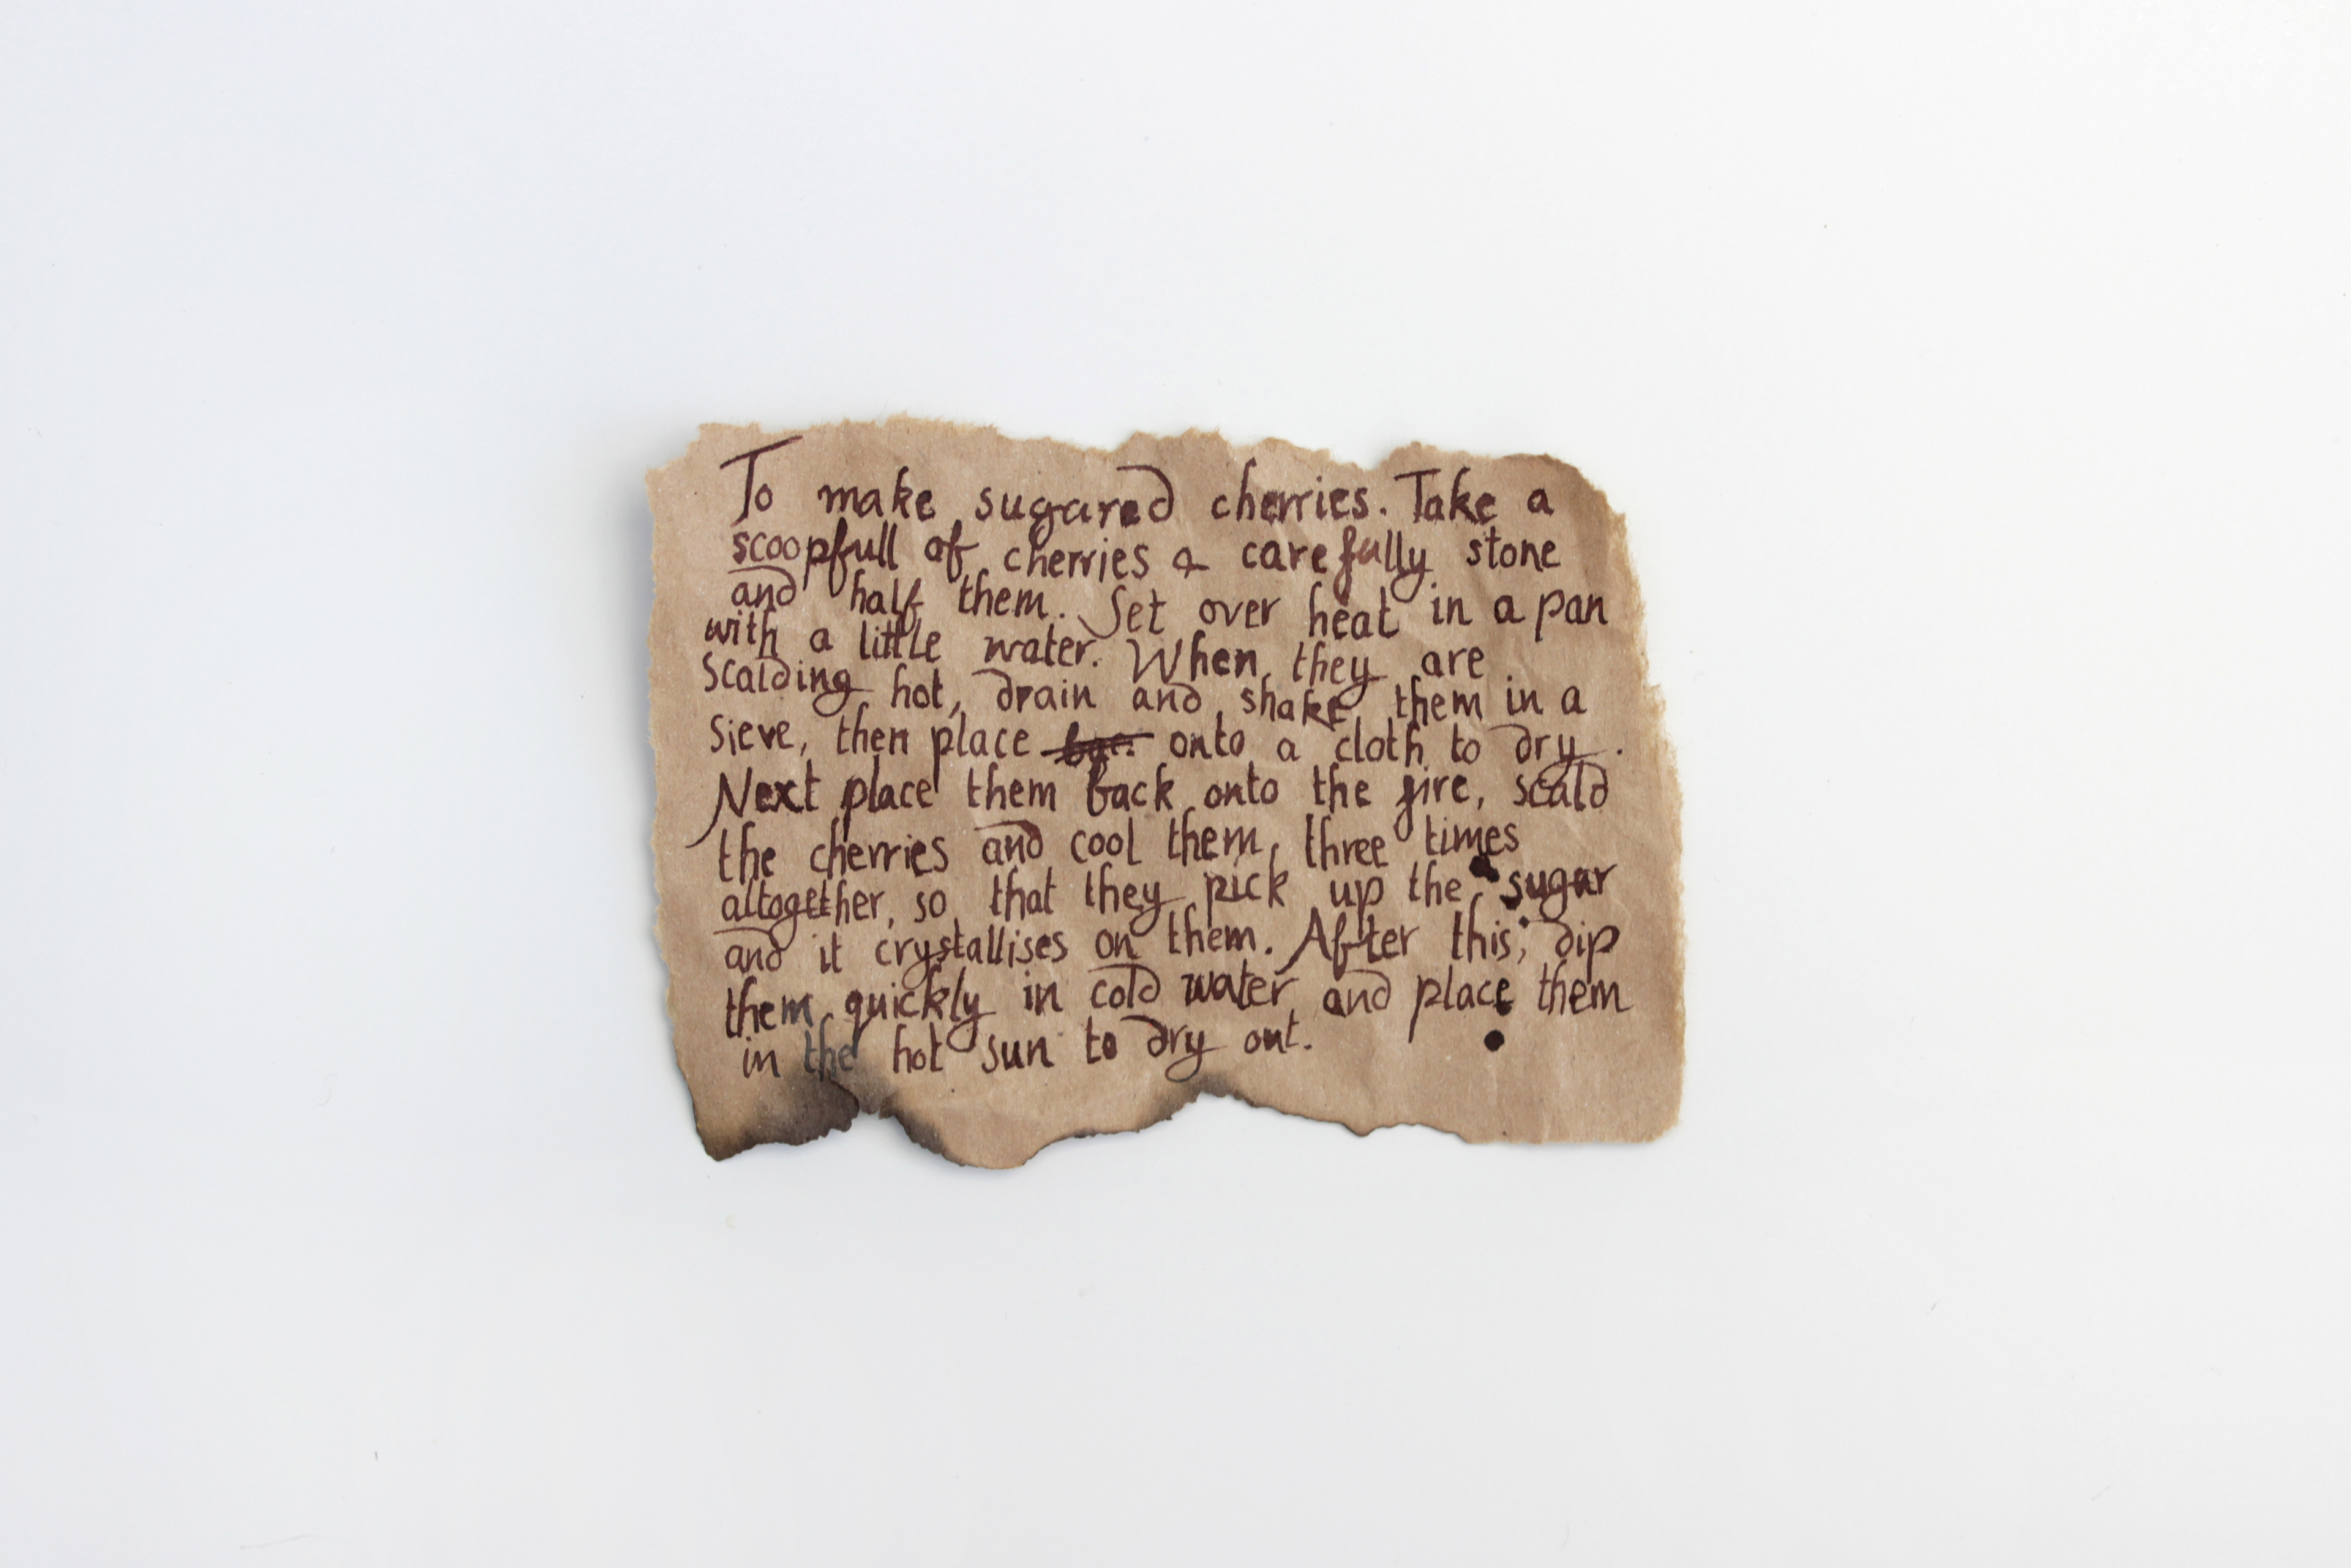 To make sugared cherries. Take a
scoopfull of cherries & carefully stone
and half them. Set over heat in a pan
with a little water. When they are
scalding hot, drain and shake them in a
sieve, then place onto a cloth to dry.
Next place them back onto the fire, scald
the cherries and cool them, three times
altogether, so that they pick up the sugar
and it crystallises on them. After this, dip
them quickly in cold water and place them
in the hot sun to dry out.